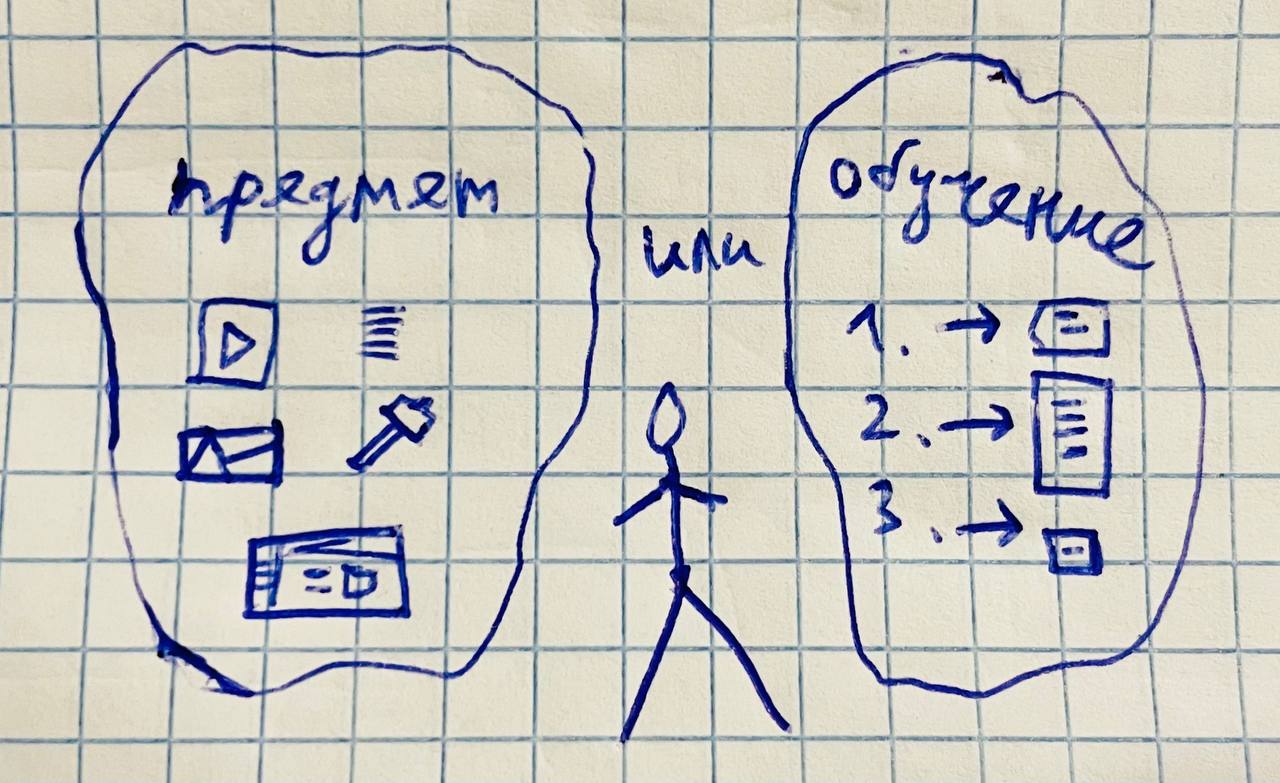 предмет
или
обучение
1. →
2. →
3. →